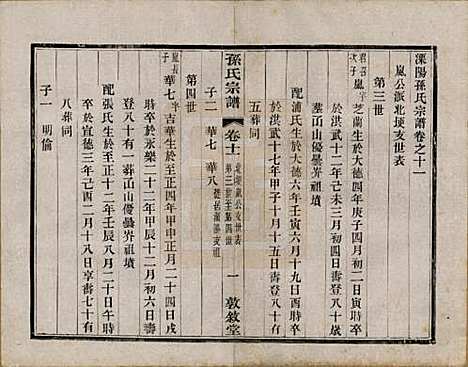 溧陽孫氏宗譜卷之十一
嵐公派北埂支世表
第三世
君召次子嵐字芝蘭生於大德四年庚子四月初二日寅時卒
於洪武十二年己未三月初四日壽登八十歲
葬山山優曇岕祖墳
配浦氏生於大德六年壬寅六月十九日酉時卒
於洪武十七年甲子十月十五日壽登八十
五葬同
子二 華七 華八
孫氏宗譜
卷十一
第三世至第四世
一
敦敘堂
第四世
嵐長子華七字吉華生於至正四年甲申正月二十四日戌
時卒於永樂二十二年甲辰十二月初六日壽
八十一葬山山優曇岕祖墳
配張氏生於至正十二年壬辰八月二十日午時
卒於宣德三年己酉二月十八日享壽七十有
八葬同
子一 明倫